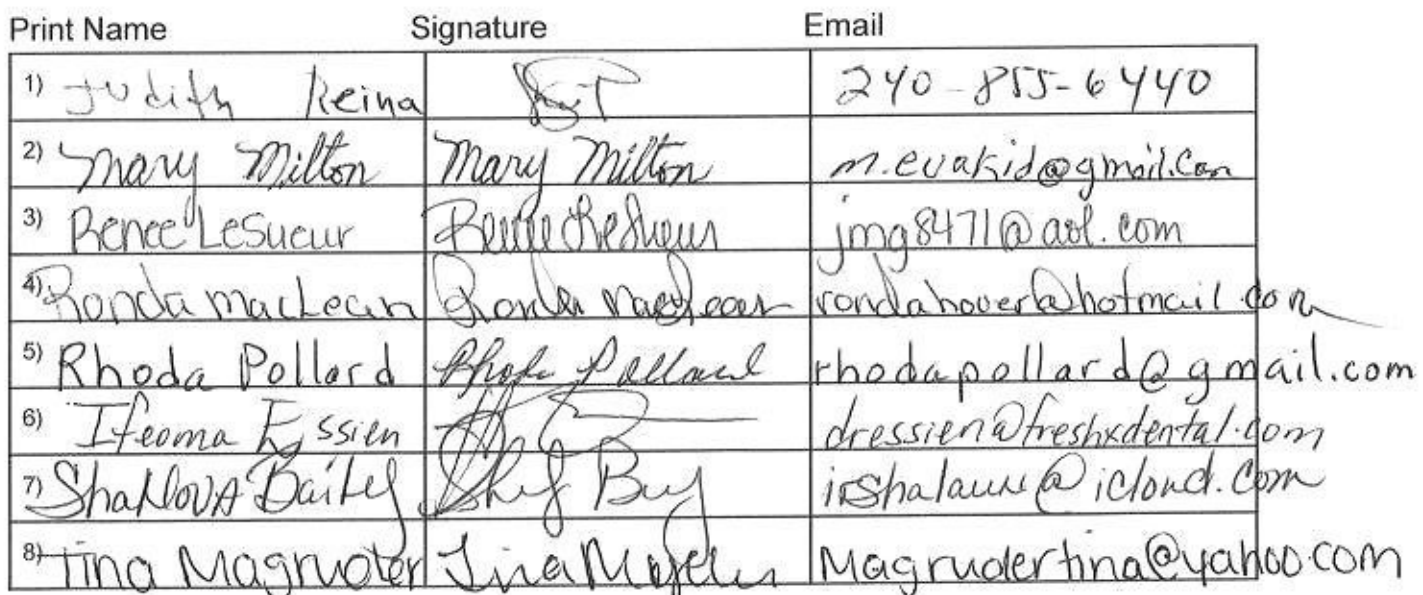 Print Name Signature Email
1) Judith Reina 240-855-6440
2) Mary Milton Mary Milton m.evakid@gmail.com
3) Renee LeSueur Renee LeSueur jmg8471@aol.com
4) Ronda MacLean Ronda MacLean rondahover@hotmail.com
5) Rhoda Pollard Rhoda Pollard rhodapollard@gmail.com
6) Ifeoma Essien dressien@freshxdental.com
7) Bailey
8) Tina Magruder Tina Magruder Magrudertina@yahoo.com